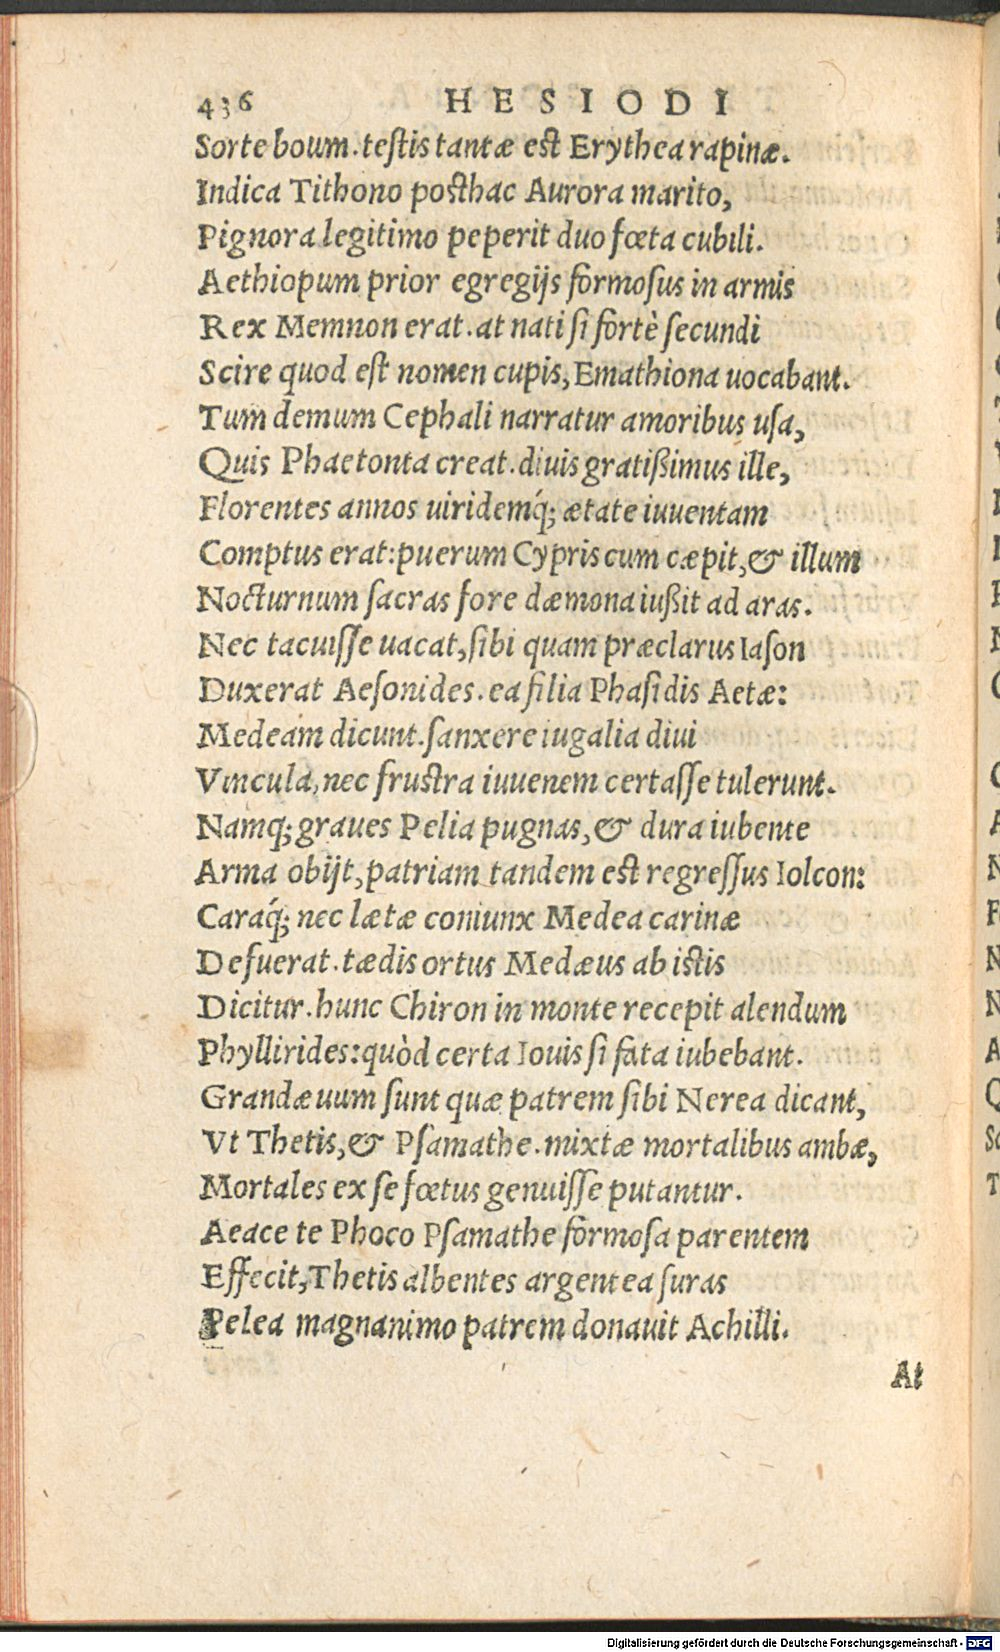 436 HESIODI
Sorte boum. teſtis tantæ eſt Erythea rapinæ.
Indica Tithono poſthac Aurora marito,
Pignora legitimo peperit duo fœta cubili.
Aethiopum prior egregijs formoſus in armis
Rex Memnon erat. at nati ſi fortè ſecundi
Scire quod eſt nomen cupis, Emathiona uocabant.
Tum demum Cephali narratur amoribus uſa,
Quis Phaetonta creat. diuis gratißimus ille,
Florentes annos uiridemq́; ætate iuuentam
Comptus erat: puerum Cypris cum cæpit, & illum
Nocturnum ſacras fore dæmona iußit ad aras.
Nec tacuiſſe uacat, ſibi quam præclarus Iaſon
Duxerat Aeſonides. ea filia Phaſidis Aetæ:
Medeam dicunt. ſanxere iugalia diui
Vincula, nec fruſtra iuuenem certaſſe tulerunt.
Namq; graues Pelia pugnas, & dura iubente
Arma obijt, patriam tandem eſt regreſſus Iolcon:
Caraq́; nec lætæ coniunx Medea carinæ
Defuerat. tædis ortus Medæus ab iſtis
Dicitur. hunc Chiron in monte recepit alendum
Phyllirides: quòd certa Iouis ſi fata iubebant.
Grandæuum ſunt quæ patrem ſibi Nerea dicant,
Vt Thetis, & Pſamathe. mixtæ mortalibus ambæ,
Mortales ex ſe fœtus genuiſſe putantur.
Aeace te Phoco Pſamathe formoſa parentem
Effecit, Thetis albentes argentea ſuras
Pelea magnanimo patrem donauit Achilli.
At
Digitalisierung gefördert durch die Deutsche Forschungsgemeinschaft - DFG